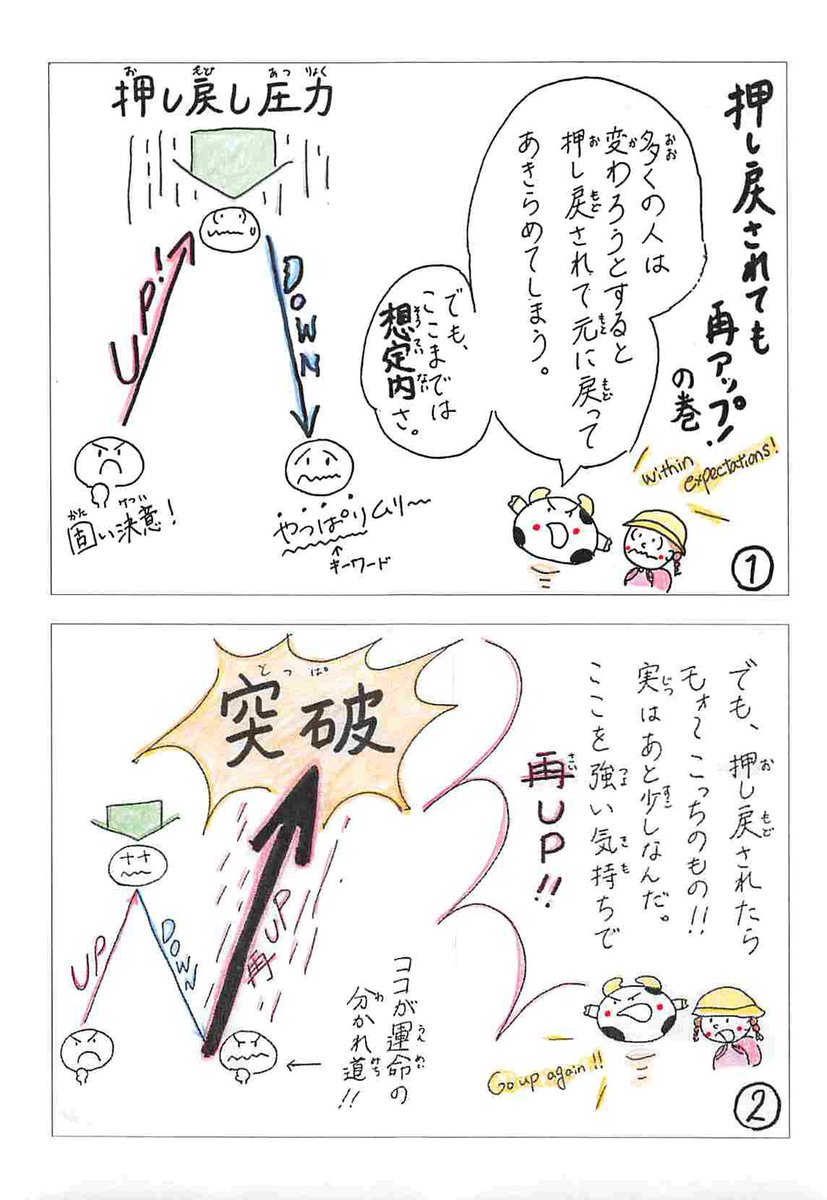 押し戻されても
再アップ!
の巻
多くの人は
変わろうとすると
押し戻されて元に戻って
あきらめてしまう。
でも、
ここまでは
想定内さ。
within
expectations!
押し戻し圧力
UP!
DOWN
固い決意!
やっぱりムリ〜
↑
キーワード
①
でも、押し戻されたら
モォ〜こっちのもの!!
実はあと少しなんだ。
ここを強い気持ちで
再UP!!
突破
UP
DOWN
再UP
ココが運命の
分かれ道!!
Go up again!!
②